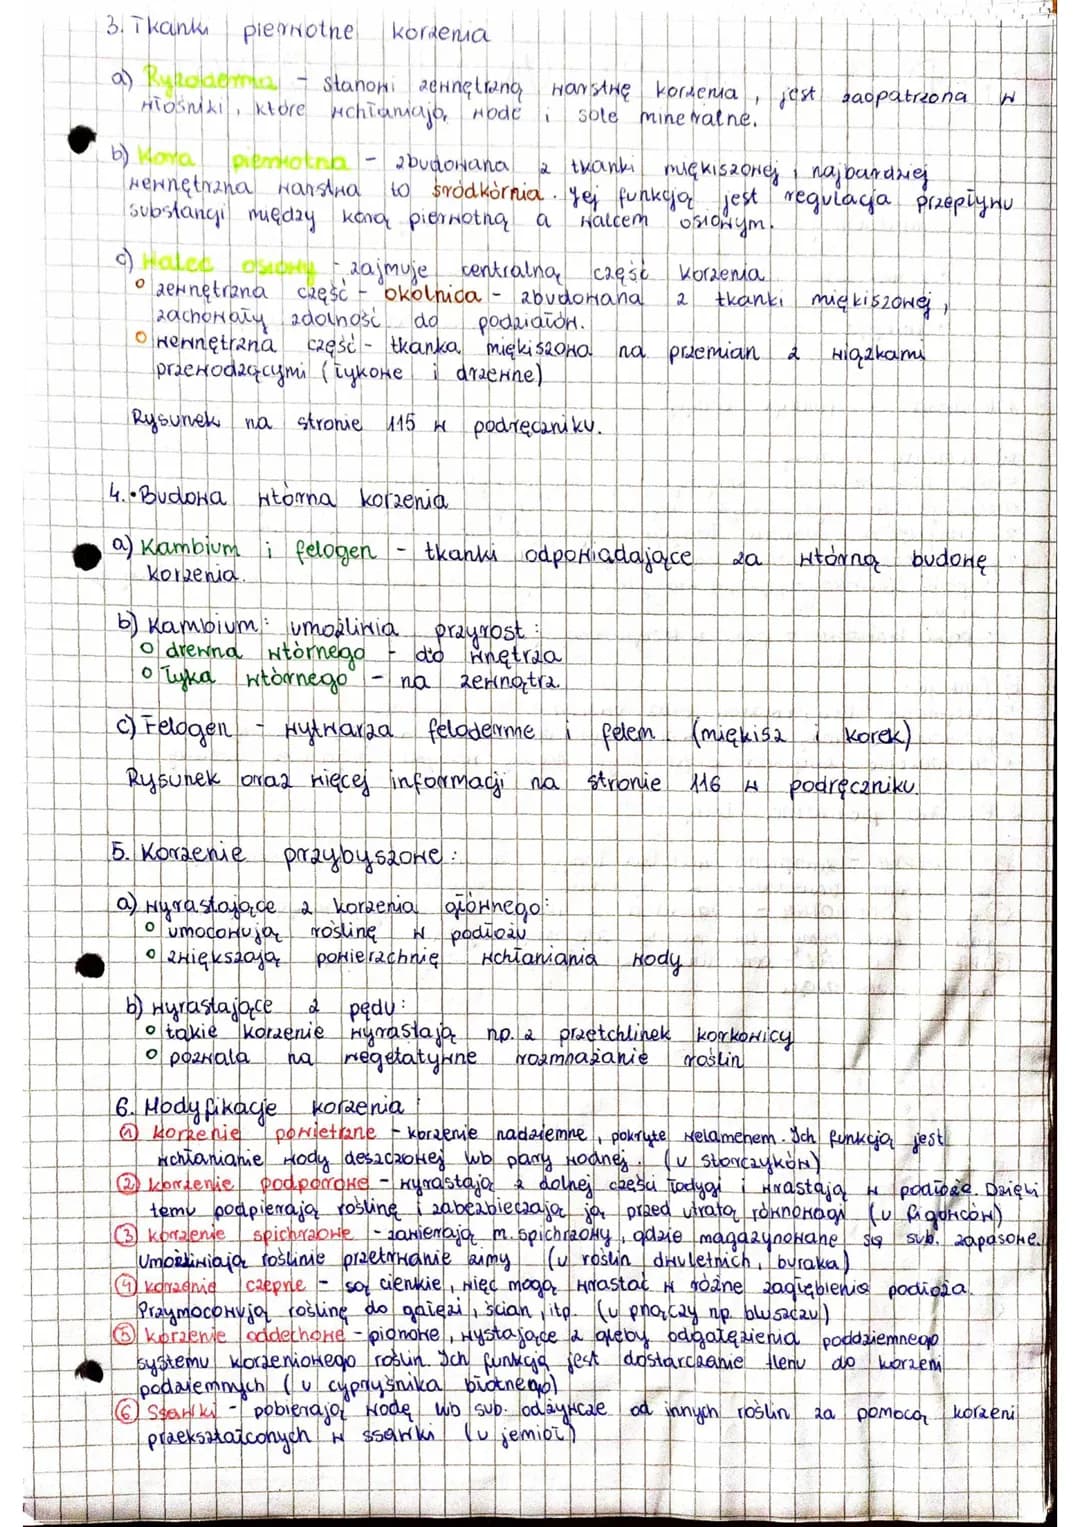 3. Tkanki pierwotne korzenia
a) Ryzoderma - stanowi zewnętrzną warstwę korzenia, jest zaopatrzona w
włośniki, które wchłaniają wodę i sole mineralne.
b) Kora pierwotna - zbudowana z tkanki miękiszowej, najbardziej
wewnętrzna warstwa to śródkórnia. Jej funkcją jest regulacja przepływu
substancji między korą pierwotną a walcem osiowym.
c) Walec osiowy - zajmuje centralną część korzenia
o zewnętrzna część - okolnica - zbudowana z tkanki miękiszowej,
zachowały zdolność do podziałów.
o wewnętrzna część - tkanka miękiszowa na przemian z wiązkami
przewodzącymi (łykowe i drzewne)
Rysunek na stronie 115 w podręczniku.
4. • Budowa wtórna korzenia
a) Kambium i felogen - tkanki odpowiadające za wtórną budowę
korzenia.
b) Kambium: umożliwia przyrost:
o drewna wtórnego - do wnętrza
o łyka wtórnego - na zewnątrz
c) Felogen - wytwarza felodermę i felem (miękisz i korek)
Rysunek oraz więcej informacji na stronie 116 w podręczniku.
5. Korzenie przybyszowe:
a) wyrastające z korzenia głównego:
o umocowują roślinę w podłożu
o zwiększają powierzchnię wchłaniania wody
b) wyrastające z pędu:
o takie korzenie wyrastają np. z przetchlinek korkowicy
o pozwala na wegetatywne rozmnażanie roślin
6. Modyfikacje korzenia:
① korzenie powietrzne - korzenie nadziemne, pokryte welamenem. Ich funkcją jest
wchłanianie wody deszczowej lub pary wodnej. (u storczyków)
② korzenie podporowe - wyrastają z dolnej części łodygi i wrastają w podłoże. Dzięki
temu podpierają roślinę i zabezbieczają ją przed utratą równowagi (u figowców)
③ korzenie spichrzowe - zawierają m. spichrzowy, gdzie magazynowane są sub. zapasowe.
Umożliwiają roślinie przetrwanie zimy (u roślin dwuletnich, buraka)
④ korzenie czepne - są cienkie, więc mogą wrastać w różne zagłębienia podłoża.
Przymocowują roślinę do gałęzi, ścian, itp. (u pnączy np. bluszczu)
⑤ korzenie oddechowe - pionowe, wystające z gleby odgałęzienia poddziemnego
systemu korzeniowego roślin. Ich funkcją jest dostarczanie tlenu do korzeni
podziemnych (u cypryśnika błotnego)
⑥ Ssawki - pobierają wodę lub sub. odżywcze od innych roślin za pomocą korzeni
przekształconych w ssawki (u jemioł)